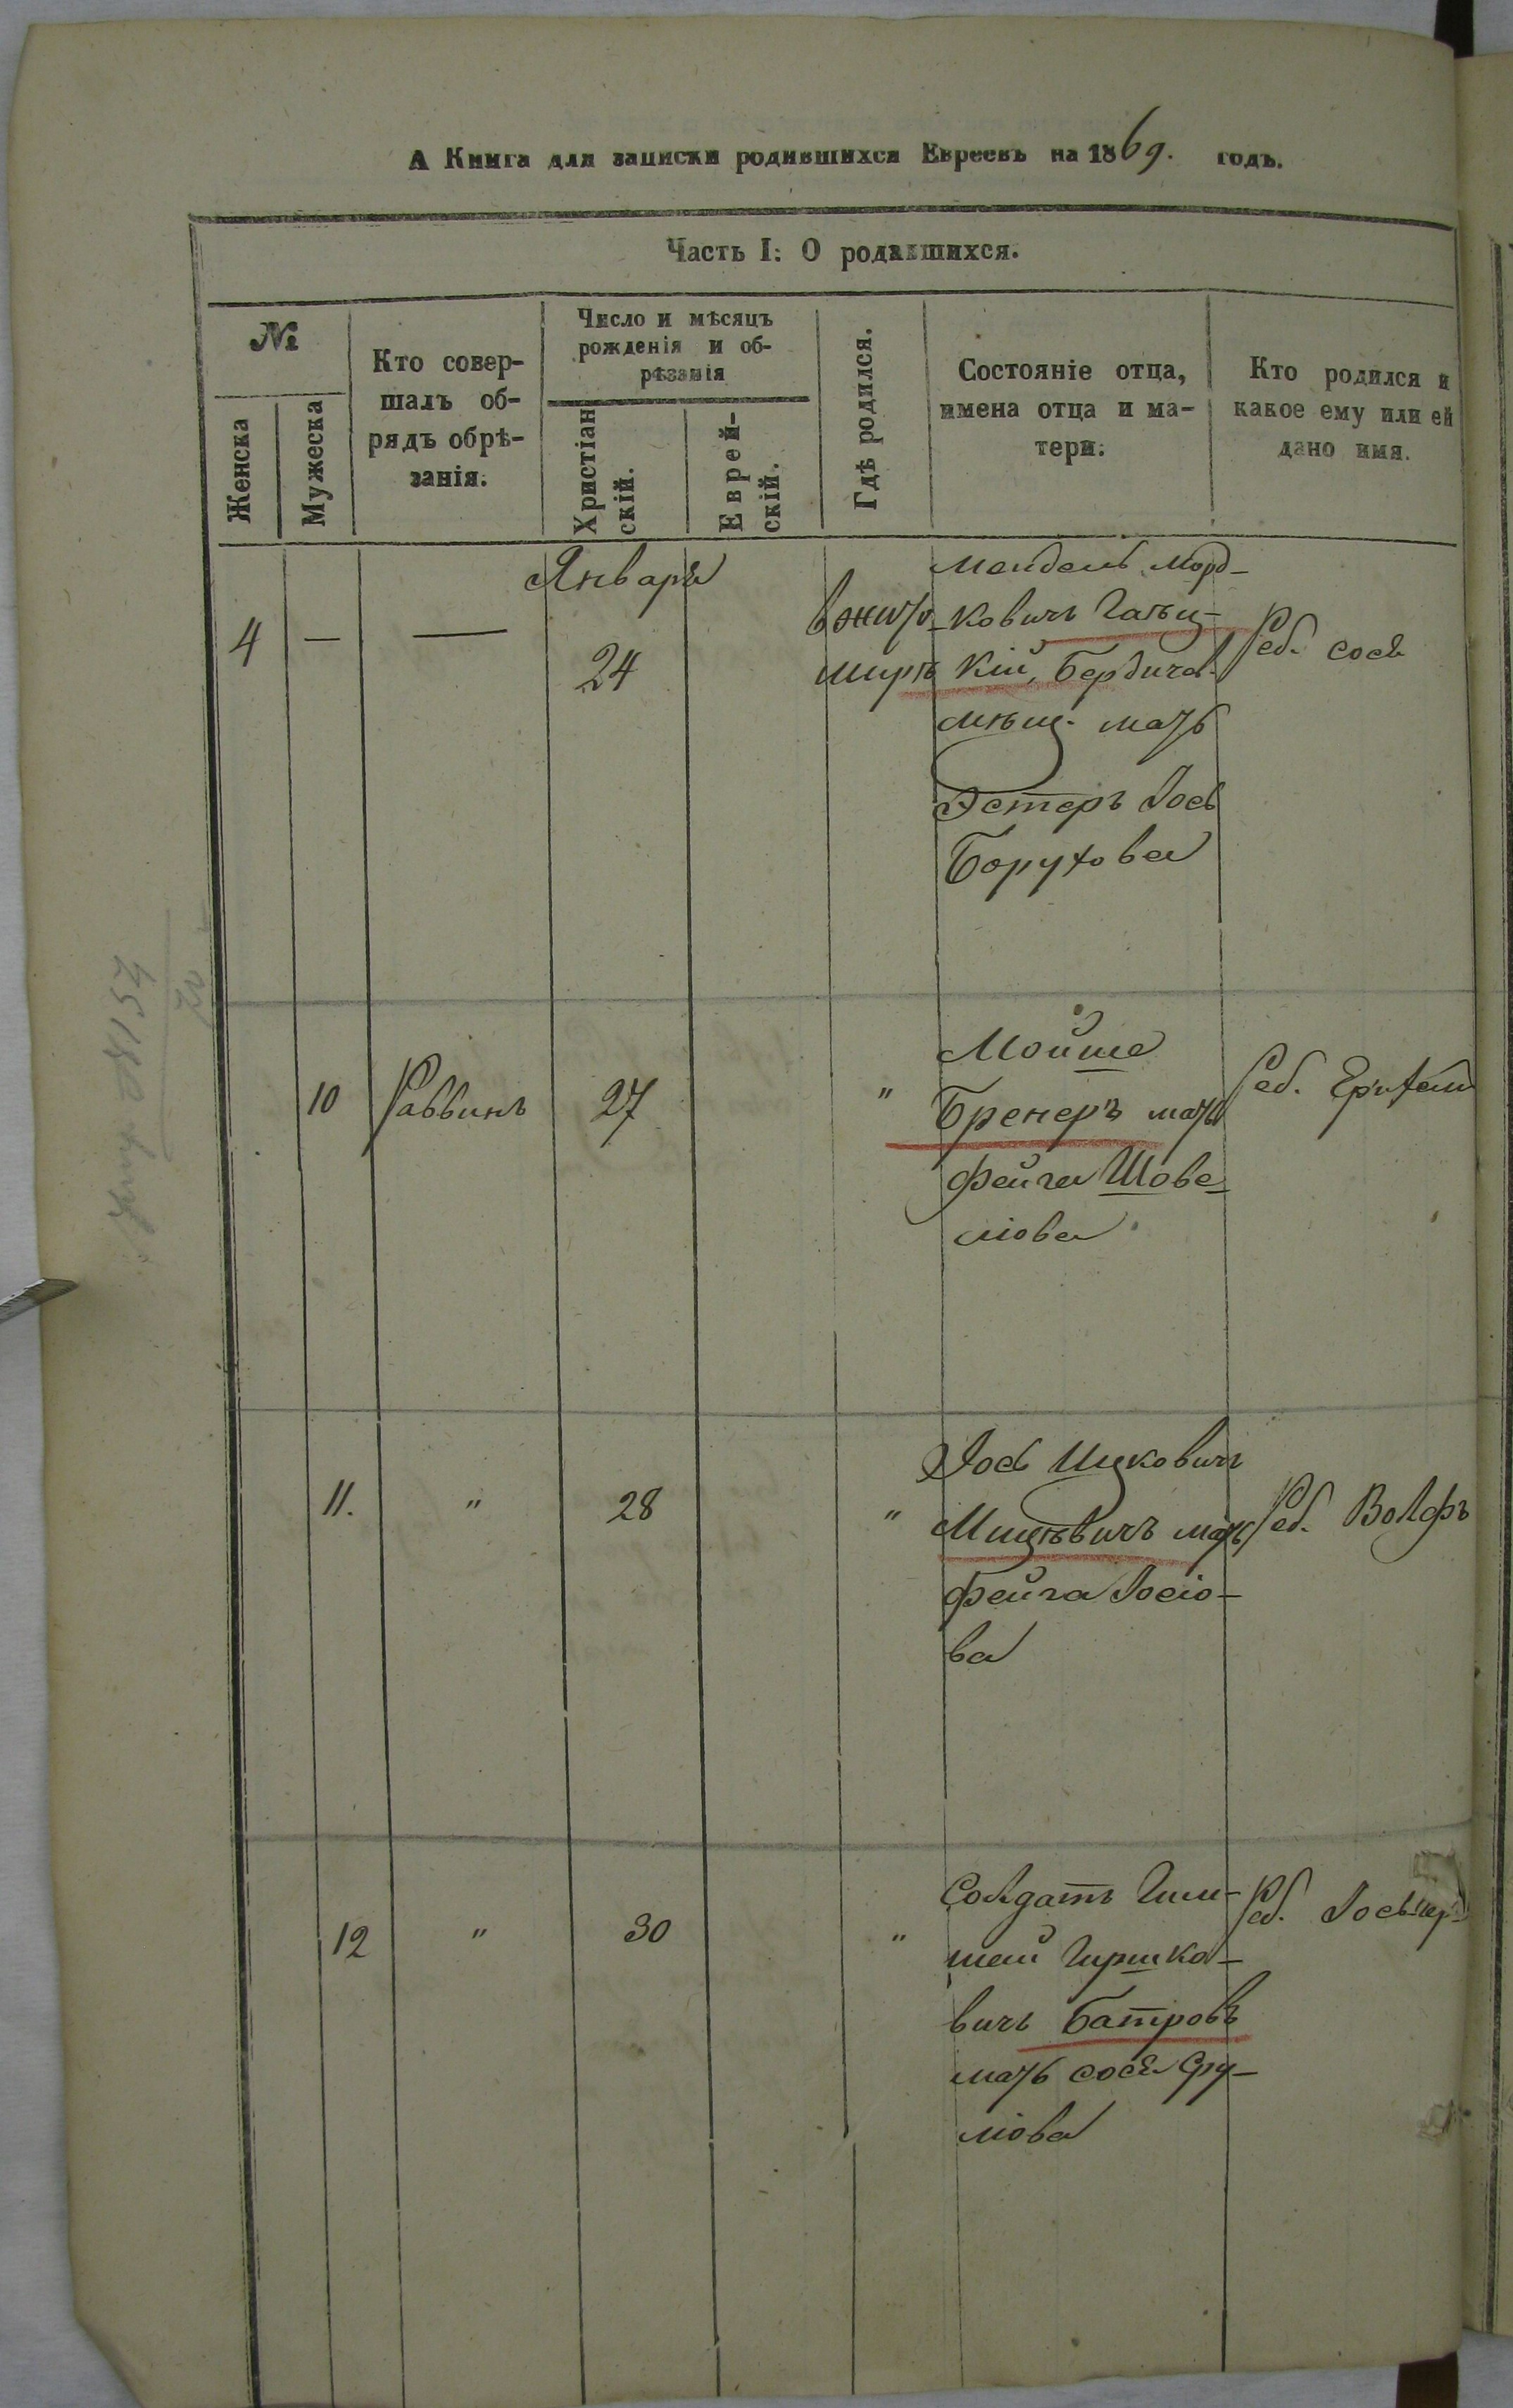 А Книга для записки родившихся Евреевъ на 1869. годъ.
Часть I: О родившихся.
№
Женска
Мужеска
Кто совер-
шалъ об-
рядъ обрѣ-
занія.
Число и мѣсяцъ
рожденія и об-
рѣзанія
Христіан
скій.
Еврей-
скій.
Гдѣ родился.
Состояніе отца,
имена отца и ма-
тери.
Кто родился и
какое ему или ей
дано имя.
Января
4 — — 24
в жито-
мирѣ
Мендель Морд-
ковичъ
кій, Бердичев.
мѣщ. мать
Эстеръ Іось
Борухова
Реб. Сося
10 Раввинъ 27 "
Мойше
Бренеръ мать
Фейга Шове-
ліова
Реб.
11. " 28 "
Іось Ицковичъ
Мицкѣвичъ мать
Фейга Іосіо-
ва
Реб. Волфъ
12 " 30 "
Солдатъ
Гиршко-
вичъ Батровъ
мать Сося Сру-
ліова
Реб. Іось-Гер-